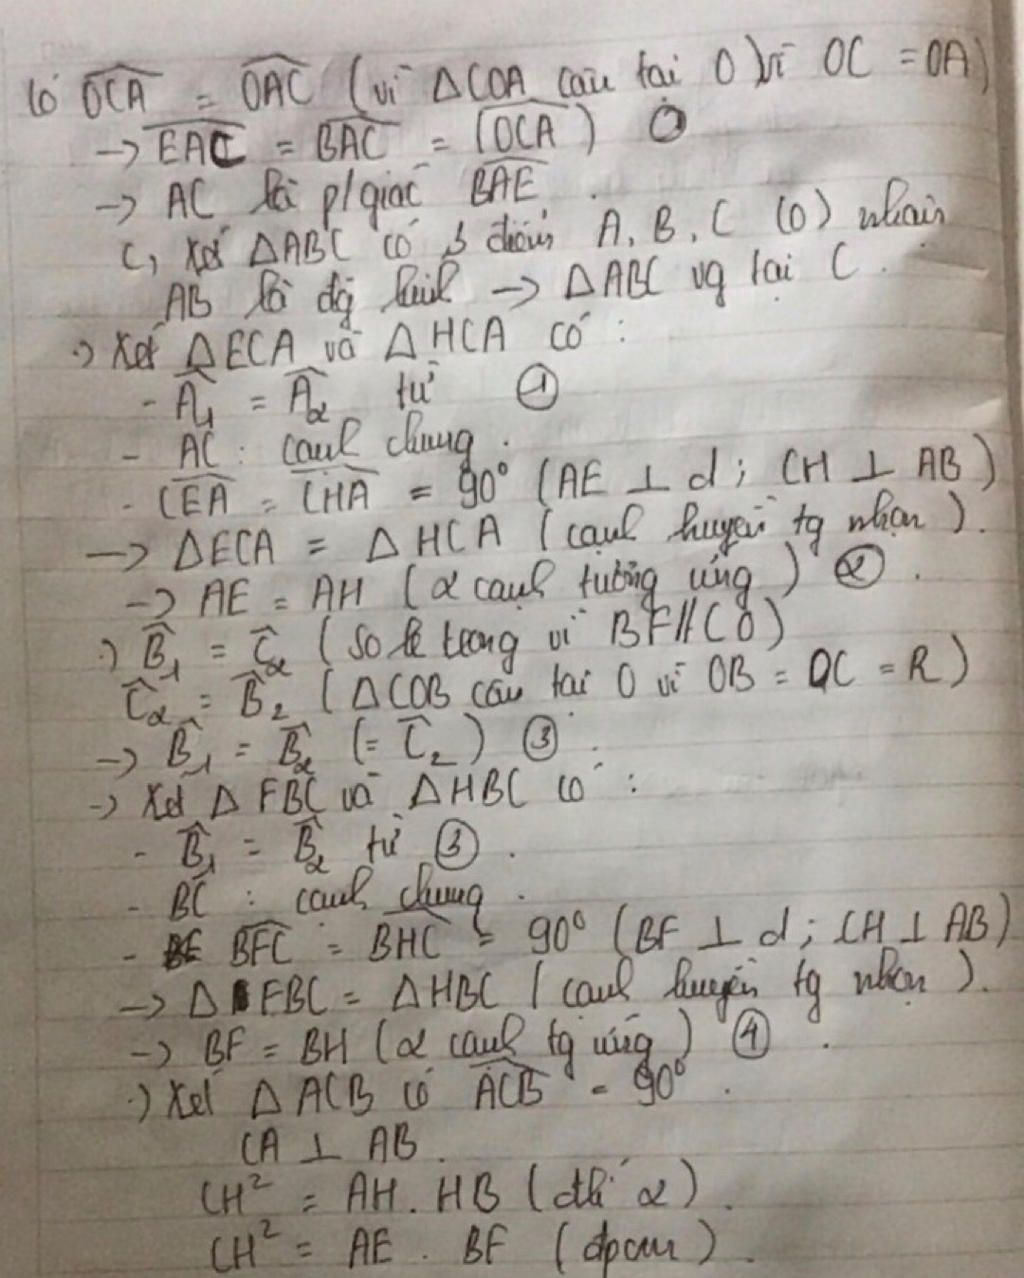 Có OCA = OAC (vì ΔCOA cân tại O vì OC = OA)
-> EAC = BAC = (OCA) ①
-> AC là p/giác BAE.
C, Xét ΔABC có 3 điểm A, B, C (O) nhận
AB là đg kính -> ΔABC vg tại C.
·) Xét ΔECA và ΔHCA có:
- Â1 = Â2 từ ①
- AC: cạnh chung.
- CEA = CHA = 90° (AE ⊥ d; CH ⊥ AB)
-> ΔECA = ΔHCA (cạnh huyền tg nhọn).
-> AE = AH (2 cạnh tương ứng) ②.
·) B̂1 = Ĉ2 (so le trong vì BF // CO)
Ĉ2 = B̂2 (ΔCOB cân tại O vì OB = OC = R)
-> B̂1 = B̂2 (= Ĉ2) ③.
-> Xét ΔFBC và ΔHBC có:
- B̂1 = B̂2 từ ③.
- BC: cạnh chung.
- BFC = BHC = 90° (BF ⊥ d; CH ⊥ AB)
-> ΔFBC = ΔHBC (cạnh huyền tg nhọn).
-> BF = BH (2 cạnh tg ứng) ④.
·) Xét ΔACB có ACB = 90°.
CA ⊥ AB.
CH² = AH. HB (đlí 2).
CH² = AE. BF (đpcm).